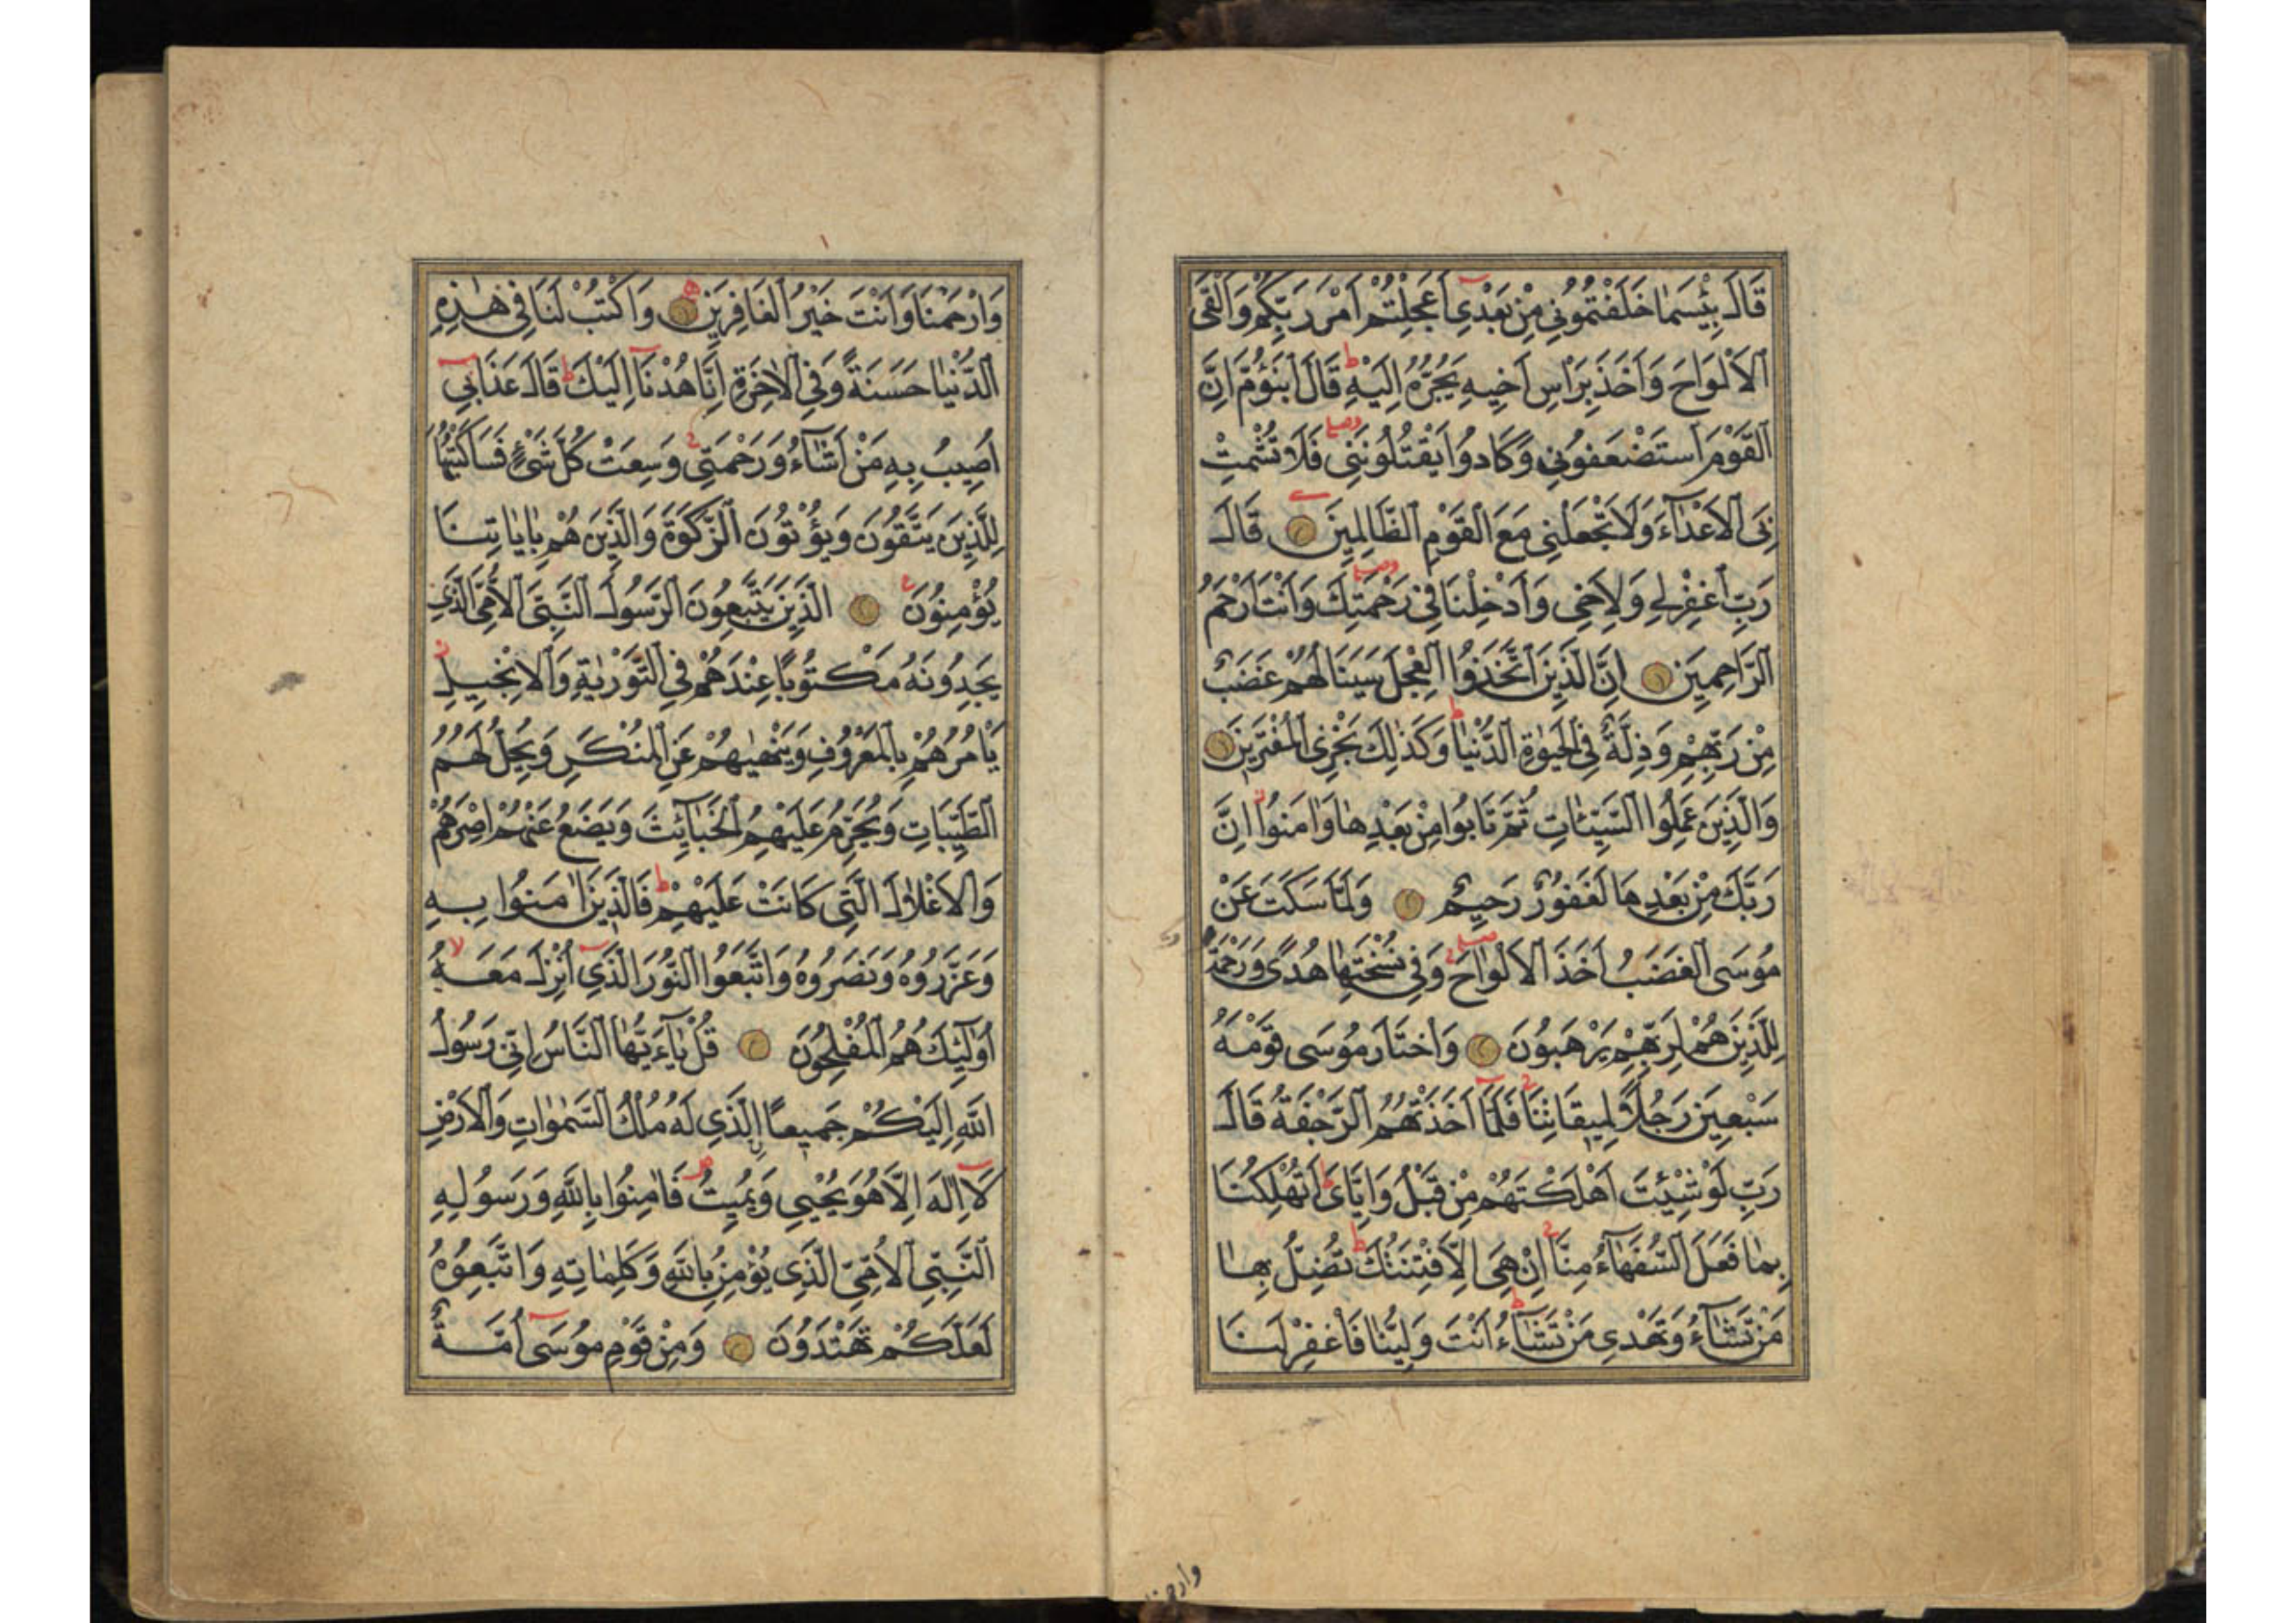 قَالَ بِئْسَمَا خَلَفْتُمُونِي مِنْ بَعْدِي أَعَجِلْتُمْ أَمْرَ رَبِّكُمْ وَأَلْقَى
الْأَلْوَاحَ وَأَخَذَ بِرَأْسِ أَخِيهِ يَجُرُّهُ إِلَيْهِ ط قَالَ ابْنَؤُمَّ إِنَّ
الْقَوْمَ اسْتَضْعَفُونِي وَكَادُوا يَقْتُلُونَنِي فَلَا تُشْمِتْ
بِيَ الْأَعْدَاءَ وَلَا تَجْعَلْنِي مَعَ الْقَوْمِ الظَّالِمِينَ قَالَ
رَبِّ اغْفِرْ لِي وَلِأَخِي وَأَدْخِلْنَا فِي رَحْمَتِكَ وَأَنْتَ أَرْحَمُ
الرَّاحِمِينَ إِنَّ الَّذِينَ اتَّخَذُوا الْعِجْلَ سَيَنَالُهُمْ غَضَبٌ
مِنْ رَبِّهِمْ وَذِلَّةٌ فِي الْحَيٰوةِ الدُّنْيَا ط وَكَذٰلِكَ نَجْزِي الْمُفْتَرِينَ
وَالَّذِينَ عَمِلُوا السَّيِّئَاتِ ثُمَّ تَابُوا مِنْ بَعْدِهَا وَآمَنُوا إِنَّ
رَبَّكَ مِنْ بَعْدِهَا لَغَفُورٌ رَحِيمٌ وَلَمَّا سَكَتَ عَنْ
مُوسَى الْغَضَبُ أَخَذَ الْأَلْوَاحَ وَفِي نُسْخَتِهَا هُدًى وَرَحْمَةٌ
لِلَّذِينَ هُمْ لِرَبِّهِمْ يَرْهَبُونَ وَاخْتَارَ مُوسَى قَوْمَهُ
سَبْعِينَ رَجُلًا لِمِيقَاتِنَا فَلَمَّا أَخَذَتْهُمُ الرَّجْفَةُ قَالَ
رَبِّ لَوْ شِئْتَ أَهْلَكْتَهُمْ مِنْ قَبْلُ وَإِيَّايَ ط أَتُهْلِكُنَا
بِمَا فَعَلَ السُّفَهَاءُ مِنَّا إِنْ هِيَ إِلَّا فِتْنَتُكَ ط تُضِلُّ بِهَا
مَنْ تَشَاءُ وَتَهْدِي مَنْ تَشَاءُ ط أَنْتَ وَلِيُّنَا فَاغْفِرْ لَنَا
وَارْحَمْنَا وَأَنْتَ خَيْرُ الْغَافِرِينَ وَاكْتُبْ لَنَا فِي هٰذِهِ
الدُّنْيَا حَسَنَةً وَفِي الْآخِرَةِ إِنَّا هُدْنَا إِلَيْكَ ط قَالَ عَذَابِي
أُصِيبُ بِهِ مَنْ أَشَاءُ وَرَحْمَتِي وَسِعَتْ كُلَّ شَيْءٍ فَسَأَكْتُبُهَا
لِلَّذِينَ يَتَّقُونَ وَيُؤْتُونَ الزَّكٰوةَ وَالَّذِينَ هُمْ بِآيَاتِنَا
يُؤْمِنُونَ الَّذِينَ يَتَّبِعُونَ الرَّسُولَ النَّبِيَّ الْأُمِّيَّ الَّذِي
يَجِدُونَهُ مَكْتُوبًا عِنْدَهُمْ فِي التَّوْرٰيةِ وَالْإِنْجِيلِ
يَأْمُرُهُمْ بِالْمَعْرُوفِ وَيَنْهٰيهُمْ عَنِ الْمُنْكَرِ وَيُحِلُّ لَهُمُ
الطَّيِّبَاتِ وَيُحَرِّمُ عَلَيْهِمُ الْخَبَائِثَ وَيَضَعُ عَنْهُمْ إِصْرَهُمْ
وَالْأَغْلَالَ الَّتِي كَانَتْ عَلَيْهِمْ ط فَالَّذِينَ آمَنُوا بِهِ
وَعَزَّرُوهُ وَنَصَرُوهُ وَاتَّبَعُوا النُّورَ الَّذِي أُنْزِلَ مَعَهُ لا
أُولٰئِكَ هُمُ الْمُفْلِحُونَ قُلْ يَا أَيُّهَا النَّاسُ إِنِّي رَسُولُ
اللّٰهِ إِلَيْكُمْ جَمِيعًا الَّذِي لَهُ مُلْكُ السَّمٰوَاتِ وَالْأَرْضِ
لَا إِلٰهَ إِلَّا هُوَ يُحْيِي وَيُمِيتُ فَآمِنُوا بِاللّٰهِ وَرَسُولِهِ
النَّبِيِّ الْأُمِّيِّ الَّذِي يُؤْمِنُ بِاللّٰهِ وَكَلِمَاتِهِ وَاتَّبِعُوهُ
لَعَلَّكُمْ تَهْتَدُونَ وَمِنْ قَوْمِ مُوسَى أُمَّةٌ